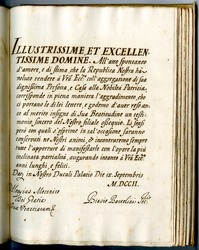 ILLUSTRISSIME, ET EXCELLEN-
TISSIME DOMINE. All'atto spontaneo
d'amore, e di stima, che la Republica Nostra hà
voluto rendere à Vrã Eccza coll'aggregatione di sua
dignissima Persona, e Casa alla Nobiltà Patrizia,
corrisponde in piena maniera l'aggradimento, che
ci portano le di lei lettere, e godemo d'auer resti-
al merito insigne di Sua
sincero del Nostro filiale ossequio. Le
però con quali s'esprime in tal'occasione saranno
conseruati ne Nostri animi, & incontraremo sempre
tutte l'apperture di manifestarle con l'opere la più
inclinata partialità, augurando intanto à Vrã Eccza
anni lunghi, e felici.
Dat. in Nostro Ducali Palatio Die ix. Septembris
M.DCCII.
Aloysius Mocenico
Dei Gratia
Dux Venetiarum &c.